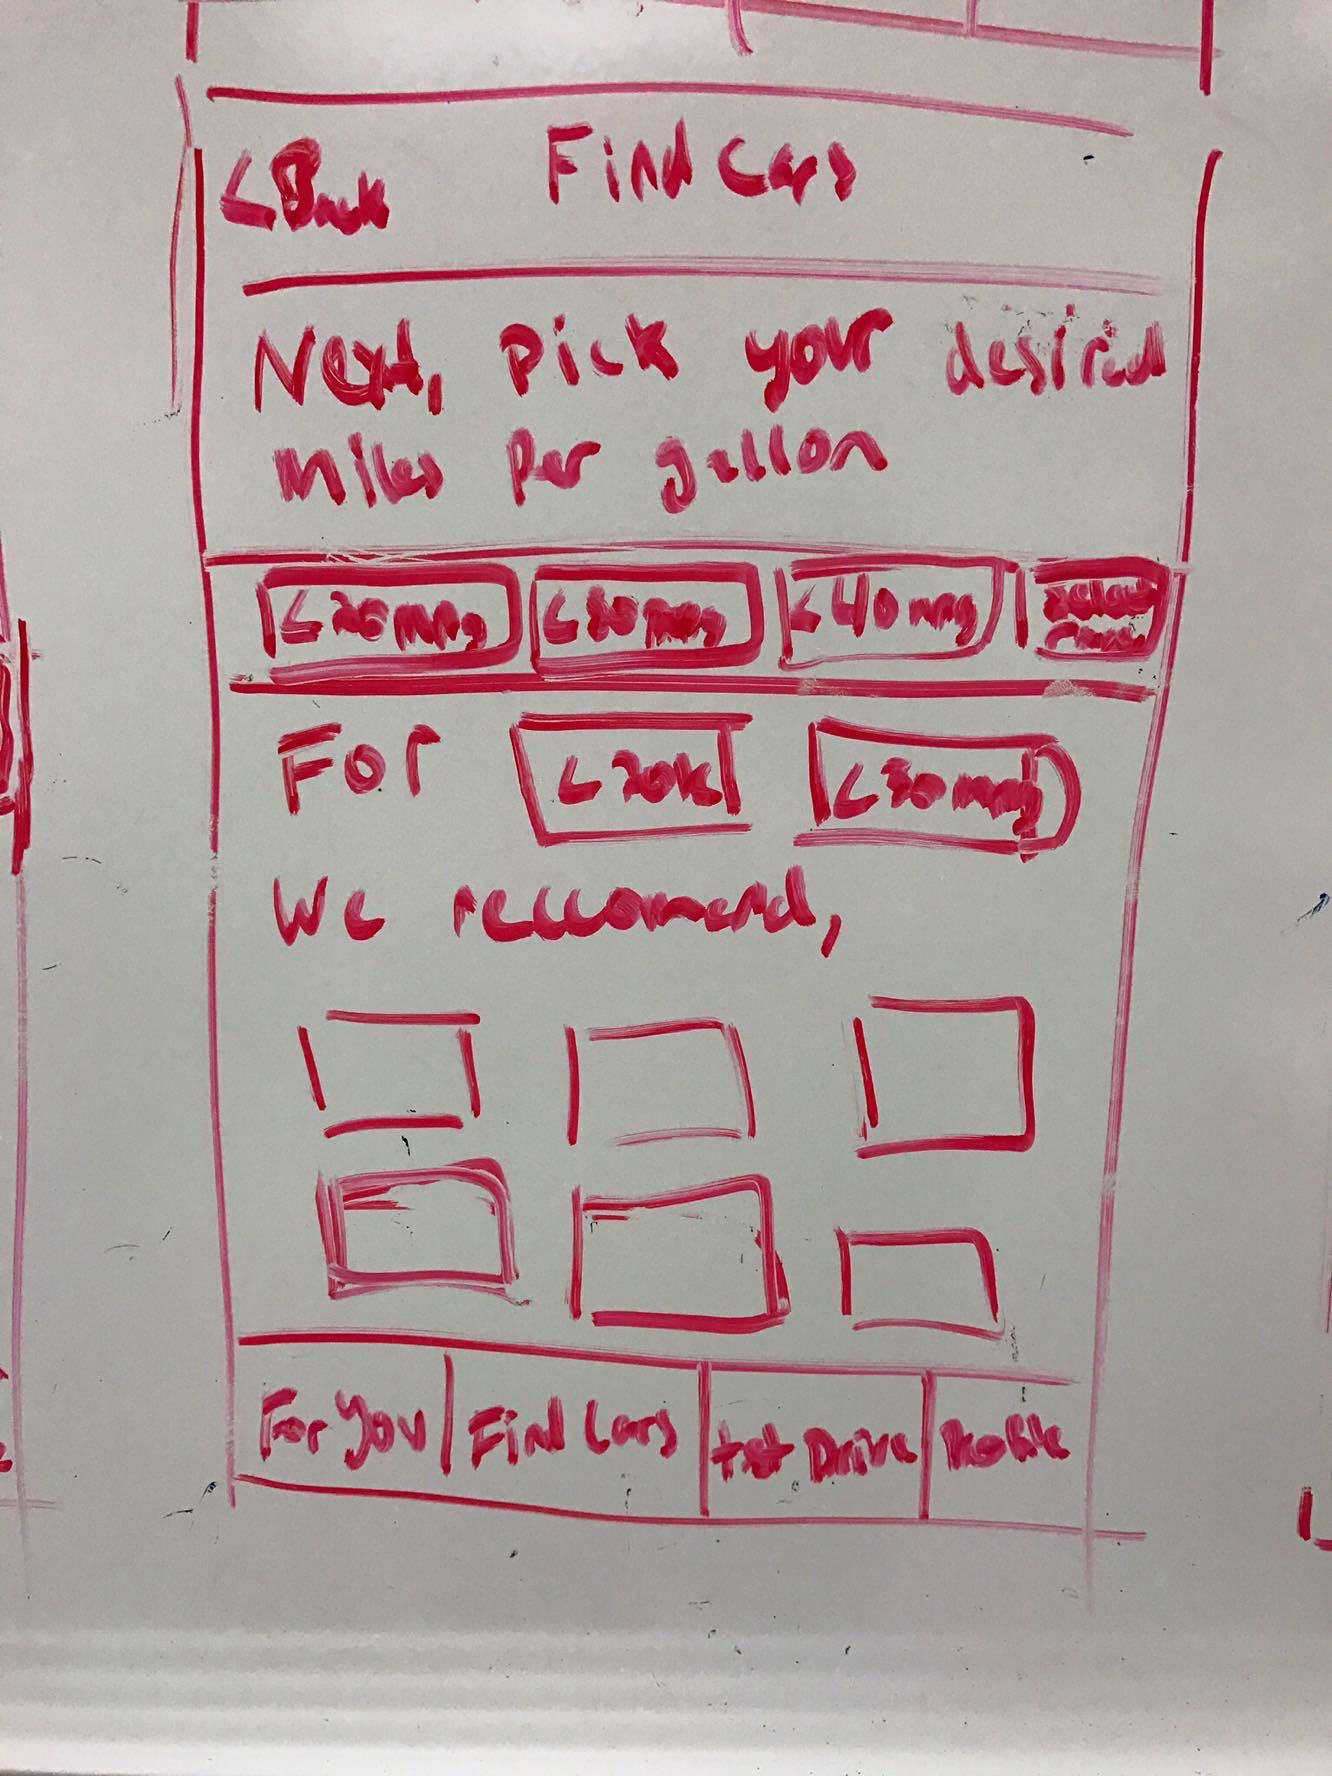 < Back Find Cars
Next, pick your desired
miles per gallon
<20mpg <30mpg <40mpg select
For <20k <30mpg
We reccomend,
For You Find Cars test Drive Profile